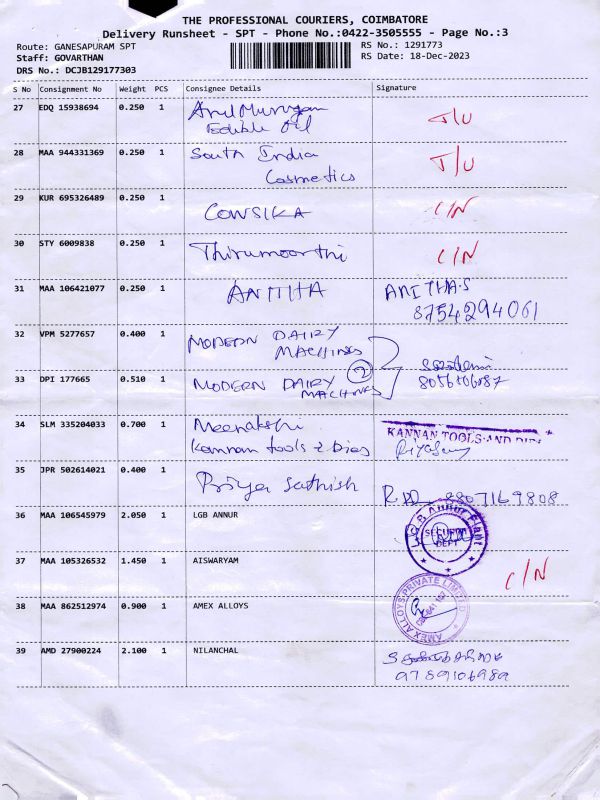 THE PROFESSIONAL COURIERS, COIMBATORE
Delivery Runsheet - SPT - Phone No.:0422-3505555 - Page No.:3
Route: GANESAPURAM SPT
RS No.: 1291773
Staff: GOVARTHAN
RS Date: 18-Dec-2023
DRS No.: DCJB129177303
S No Consignment No Weight PCS Consignee Details Signature
27 EDQ 15938694 0.250 1 Arul Murugan
Edible Oil
J/U
28 MAA 944331369 0.250 1 South India
Cosmetics
J/U
29 KUR 695326489 0.250 1 COWSIKA C/N
30 STY 6009838 0.250 1 Thirumoorthi C/N
31 MAA 106421077 0.250 1 ANITHA ANITHA.S
8754294061
32 VPM 5277657 0.400 1 MODERN DAIRY
MACHINES
2
33 DPI 177665 0.510 1 MODERN DAIRY
MACHINES
34 SLM 335204033 0.700 1 Meenakshi
Kannan tools & Dies
KANNAN TOOLS AND
35 JPR 502614021 0.400 1 Priya Sathish
8807169808
36 MAA 106545979 2.050 1 LGB ANNUR
L.G.B Annur Plant
SECURITY
DEPT
37 MAA 105326532 1.450 1 AISWARYAM C/N
38 MAA 862512974 0.900 1 AMEX ALLOYS
AMEX ALLOYS PRIVATE LIMITED
39 AMD 27900224 2.100 1 NILANCHAL
9789106989